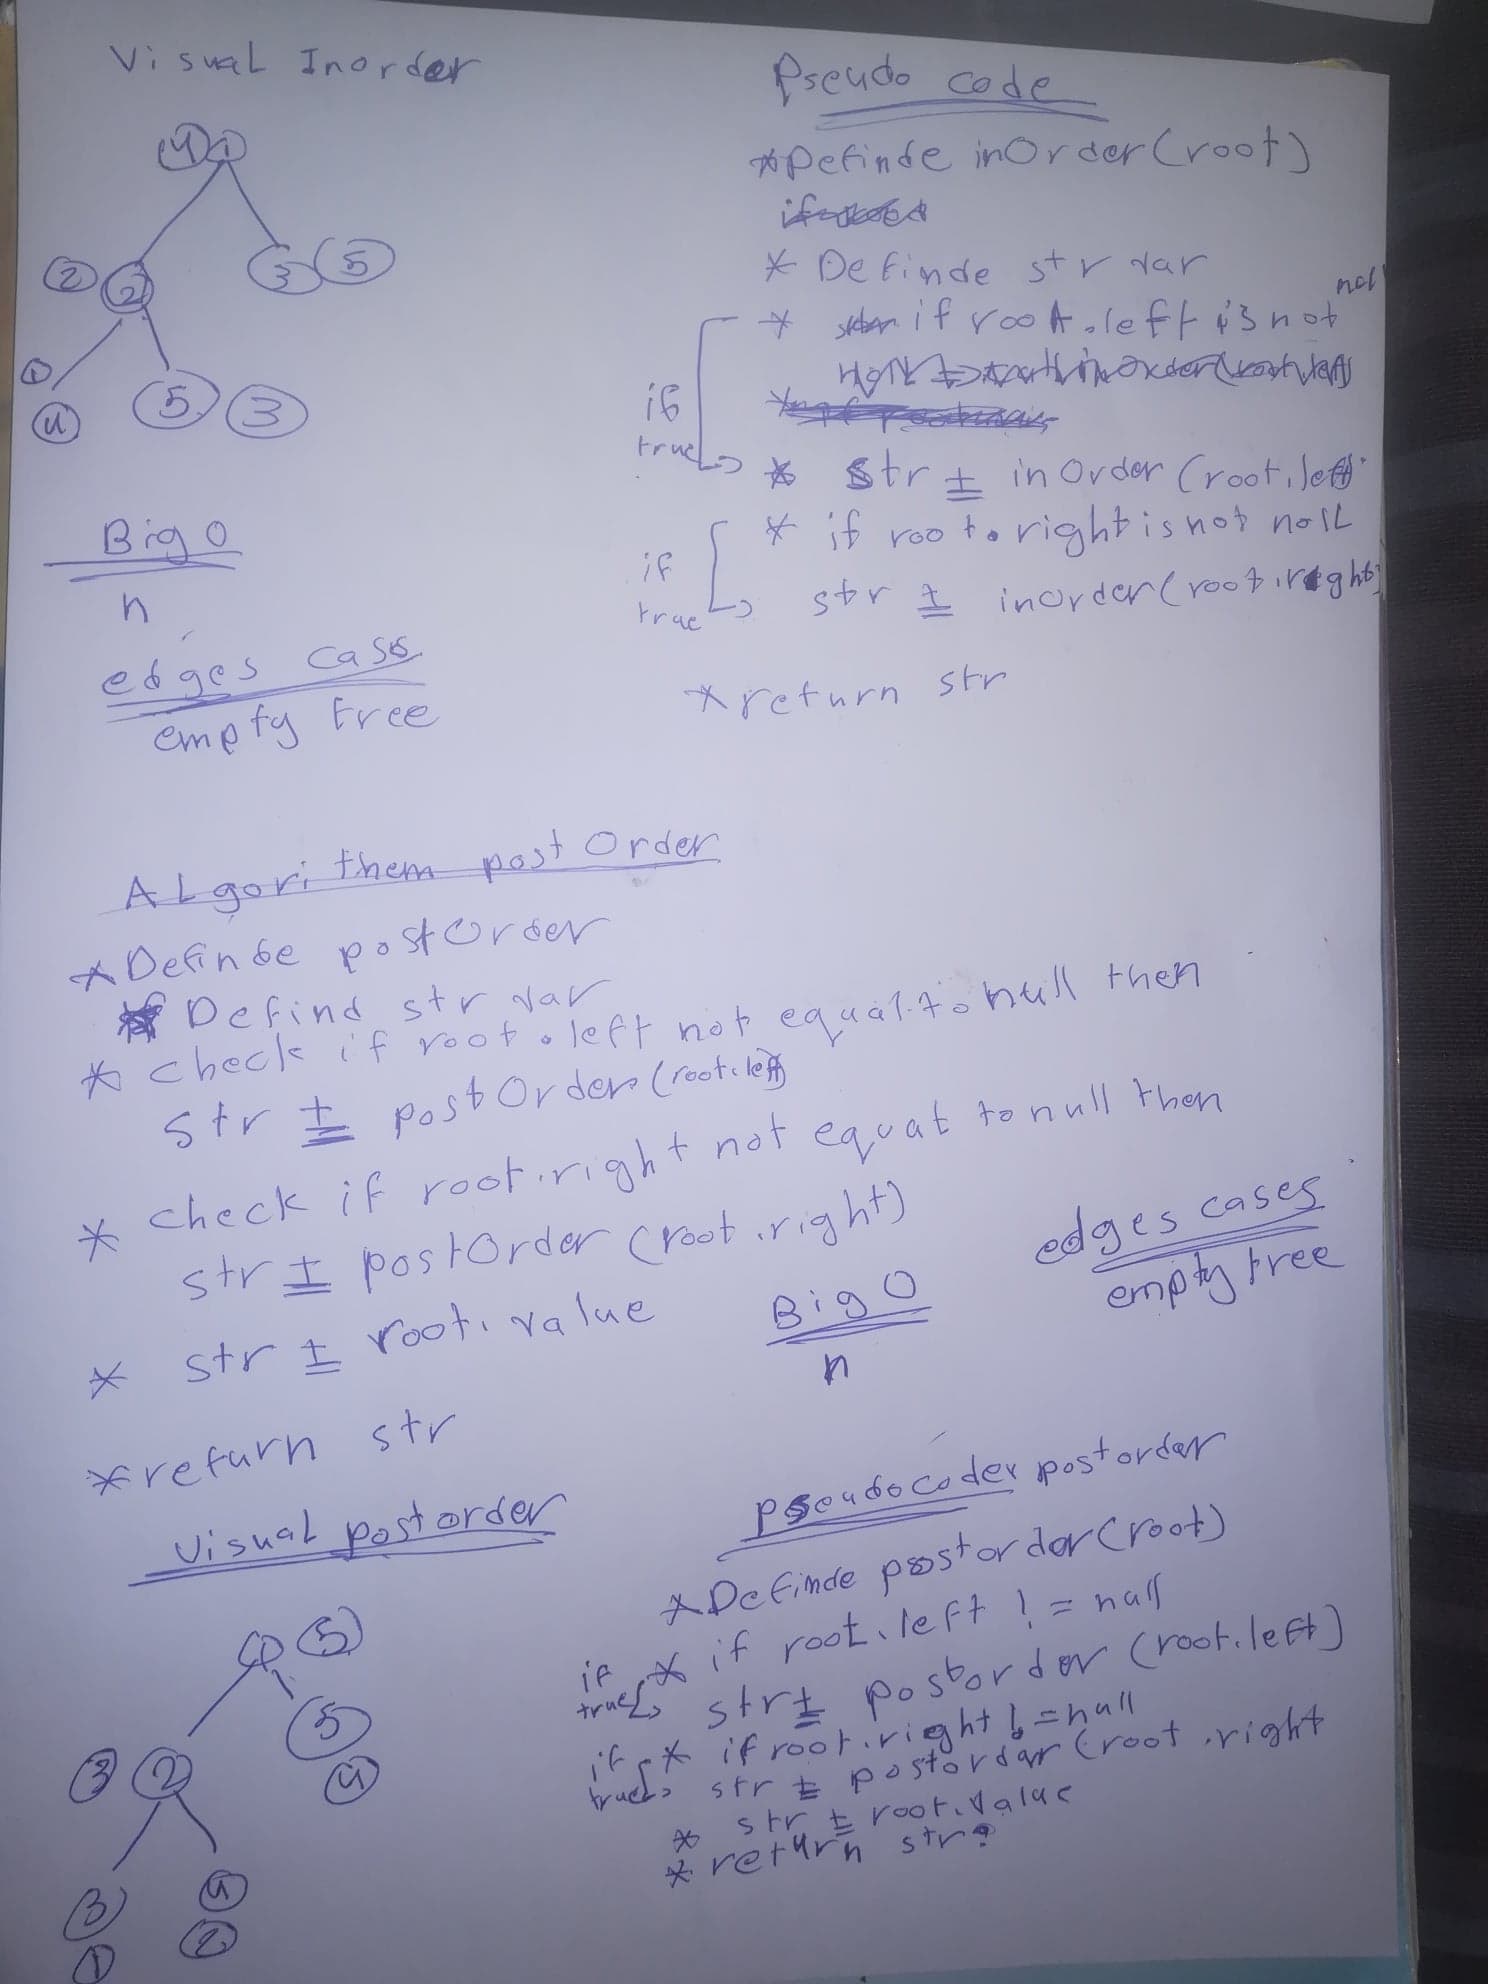 Visual Inorder
4 1
2 2
3 5
1
4
5 3
Big O
n
edges case
empty tree
Pseudo code
* Definde inOrder(root)
* Definde str var
* if root.left is not nol
if true
* str += inOrder (root.left)
* if root.right is not noll
if true
str += inorder(root.right)
* return str
ALgorithem post Order
* Definde postOrder
* Defind str var
* check if root.left not equal to null then
str += postOrder (root.left)
* check if root.right not equat to null then
str += postOrder (root.right)
* str += root.value
* return str
Big O
n
edges cases
empty tree
Visual postorder
1 5
5
4
3 2
3
1
4
2
pseudocoder postorder
* Definde postordor(root)
* if root.left != null
if true
str += postorder (root.left)
* if root.right != null
if true
str += postordar (root.right
* str += root.value
* return str